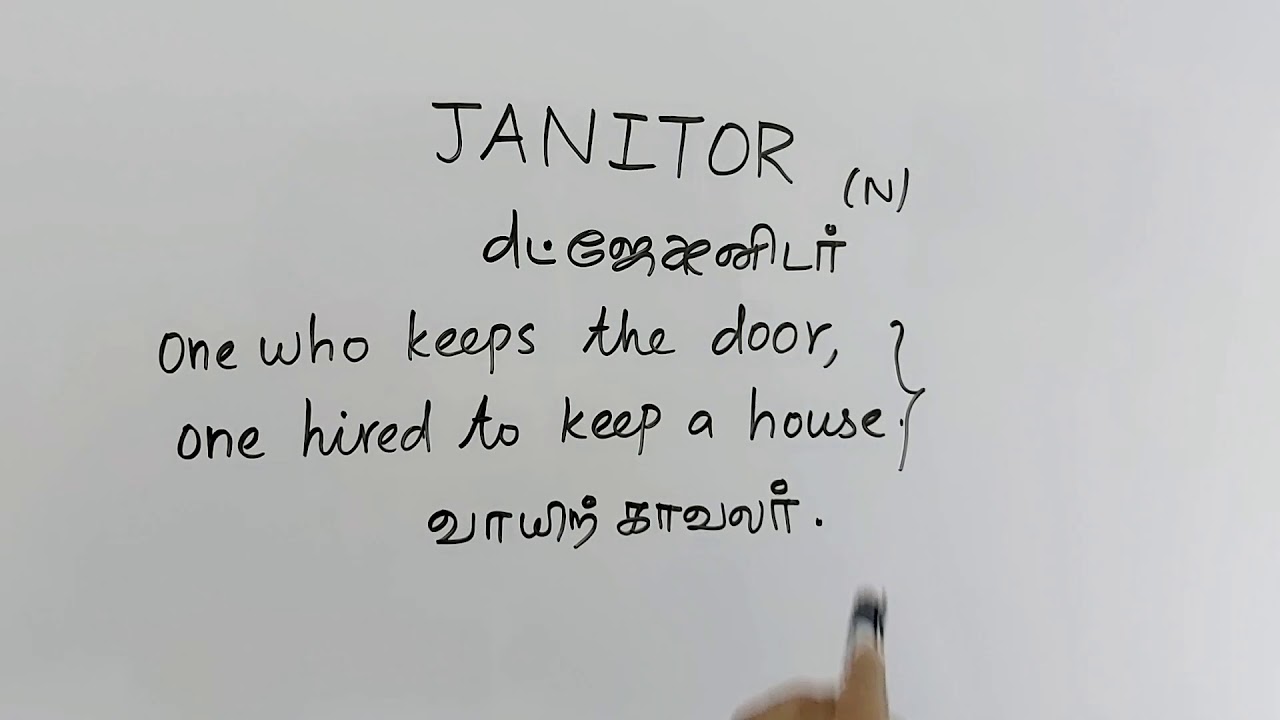 JANITOR (N)
one who keeps the door,
one hired to keep a house.
வாயிற் காவலர்.